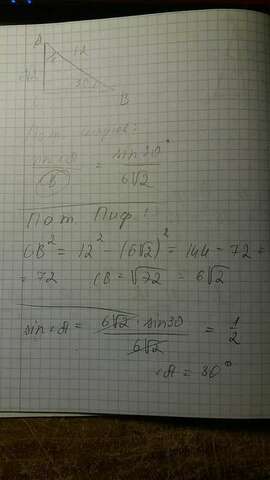 A
12
30
B
sin 30°
6√2
По т. Пиф.
CB² = 12² - (6√2)² = 144 - 72 =
= 72 CB = √72 = 6√2
sin∠A = 6√2 · sin30 / 6√2 = 1/2
∠A = 30°